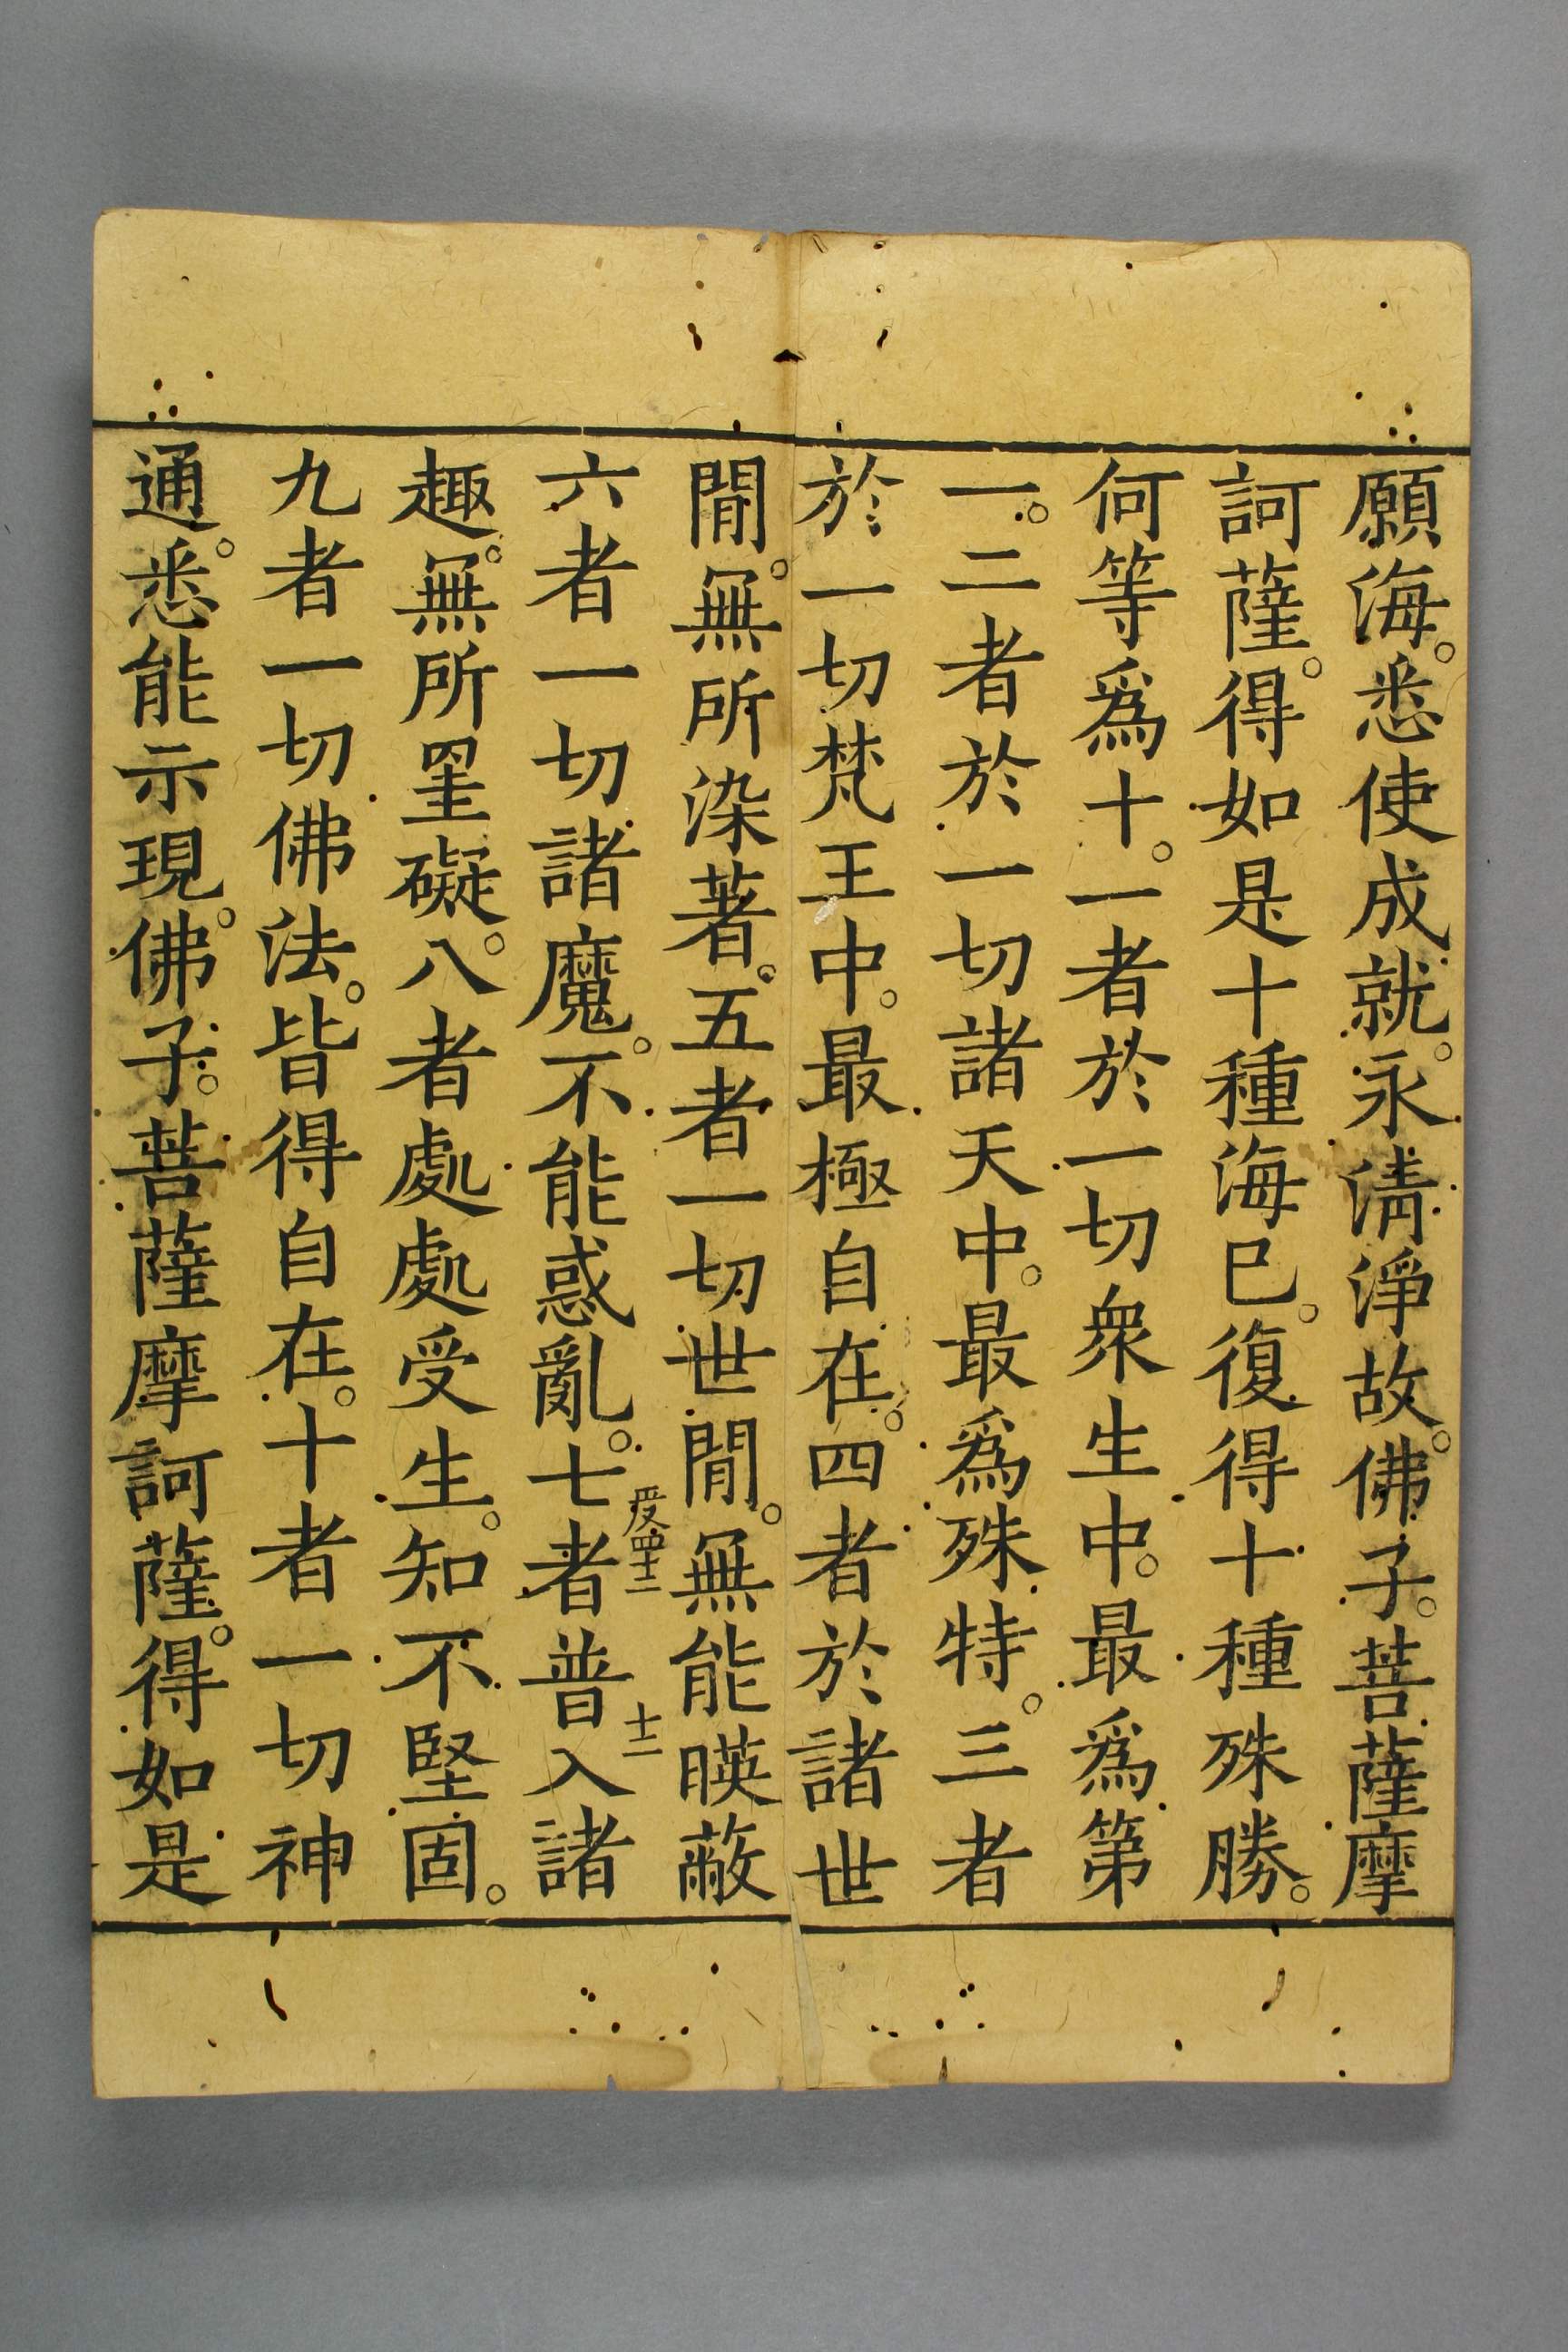 願海。悉使成就。永清淨故。佛子。菩薩摩
訶薩。得如是十種海已。復得十種殊勝。
何等爲十。一者於一切衆生中。最爲第
一。二者於一切諸天中。最爲殊特。三者
於一切梵王中。最極自在。四者於諸世
閒。無所染著。五者一切世閒。無能暎蔽
六者一切諸魔。不能惑亂。七者普入諸
趣。無所罣礙。八者處處受生。知不堅固。
九者一切佛法。皆得自在。十者一切神
通。悉能示現。佛子。菩薩摩訶薩。得如是
十二